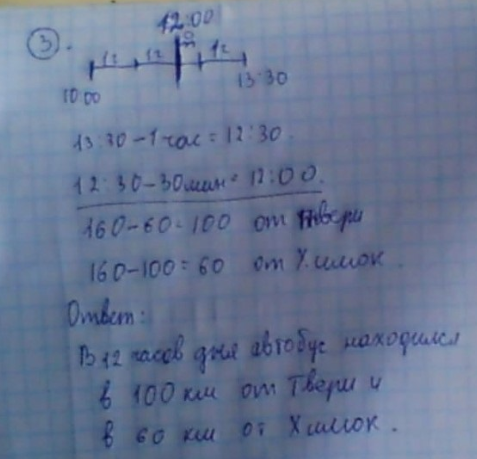 3.
12:00
1ч 1ч 1ч
10:00
13:30
13:30-1час=12:30.
12:30-30мин=12:00.
160-60=100 от Твери
160-100=60 от Химок.
Ответ:
В 12 часов дня автобус находился
в 100 км от Твери и
в 60 км от Химок.